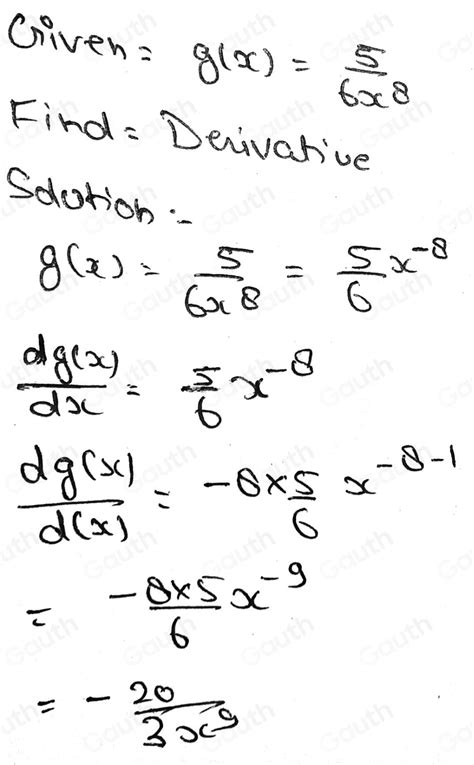 Given = g(x) = 5/6x8
Find = Derivative
Solution :-
g(x) = 5/6x8 = 5/6 x^-8
dg(x)/dx = 5/6 x^-8
dg(x)/d(x) = -8×5/6 x^-8-1
= -8×5/6 x^-9
= - 20/3x^9